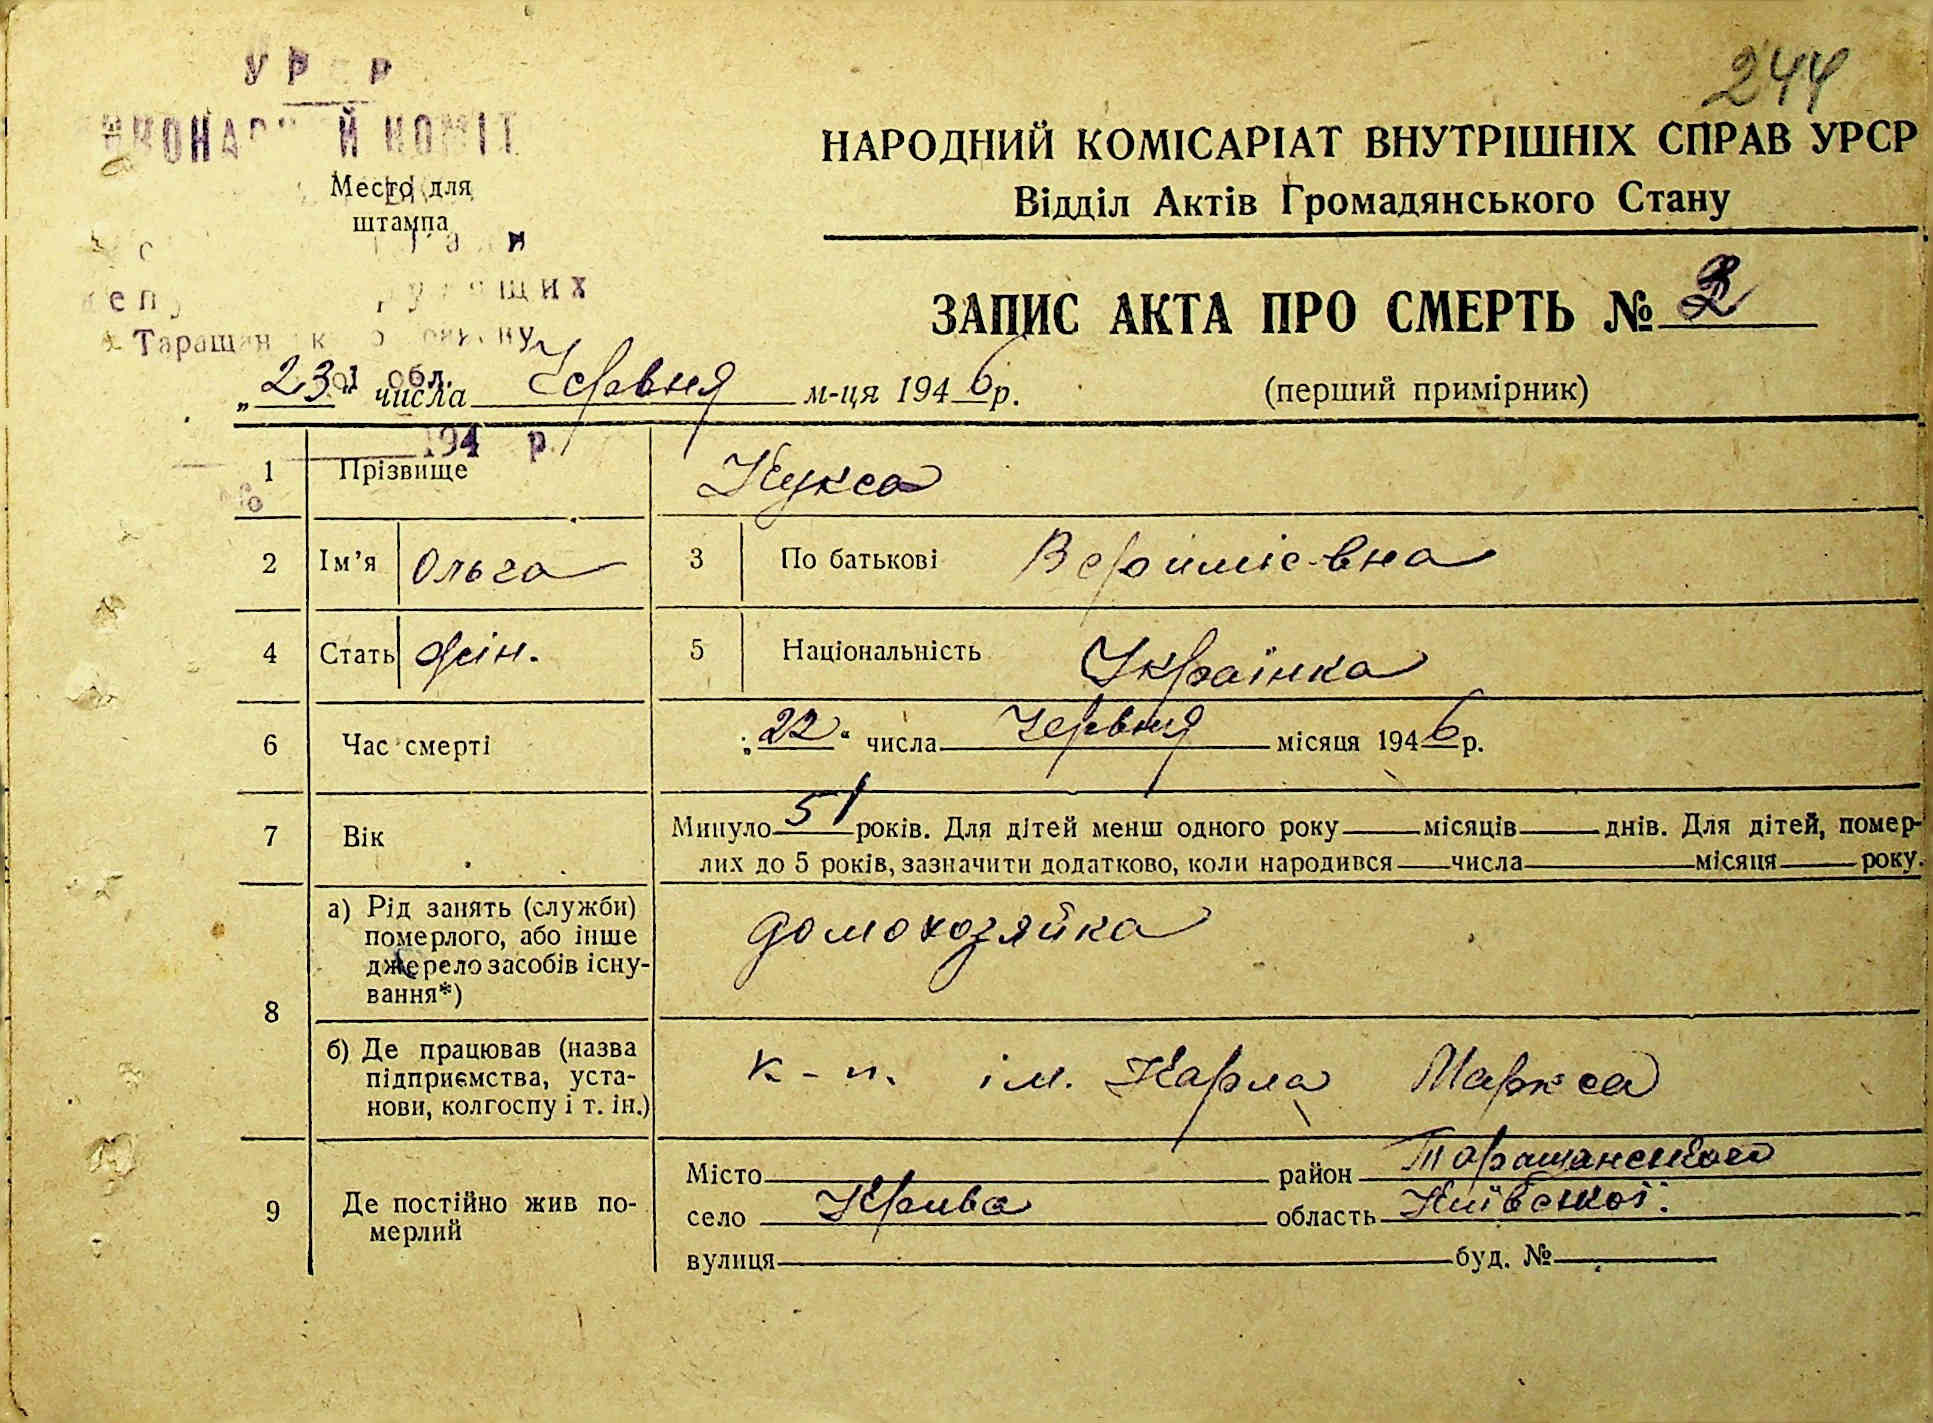 244
УРСР
Й КОМІТ
Место для
штампа
Таращан
обл.
194 р.
НАРОДНИЙ КОМІСАРІАТ ВНУТРІШНІХ СПРАВ УРСР
Відділ Актів Громадянського Стану
ЗАПИС АКТА ПРО СМЕРТЬ №
(перший примірник)
„23“ числа Червня м-ця 1946 р.
1 Прізвище Кукса
2 Ім'я Ольга 3 По батькові
4 Стать жін. 5 Національність Українка
6 Час смерті „22“ числа Червня місяця 1946 р.
7 Вік Минуло 51 років. Для дітей менш одного року місяців днів. Для дітей, помер-
лих до 5 років, зазначити додатково, коли народився числа місяця року.
8 а) Рід занять (служби)
померлого, або інше
джерело засобів існу-
вання*)
домохозяйка
б) Де працював (назва
підприємства, уста-
нови, колгоспу і т. ін.)
к-п. ім. Карла Маркса
9 Де постійно жив по-
мерлий
Місто район Таращанського
село Крива область Київської
вулиця буд. №